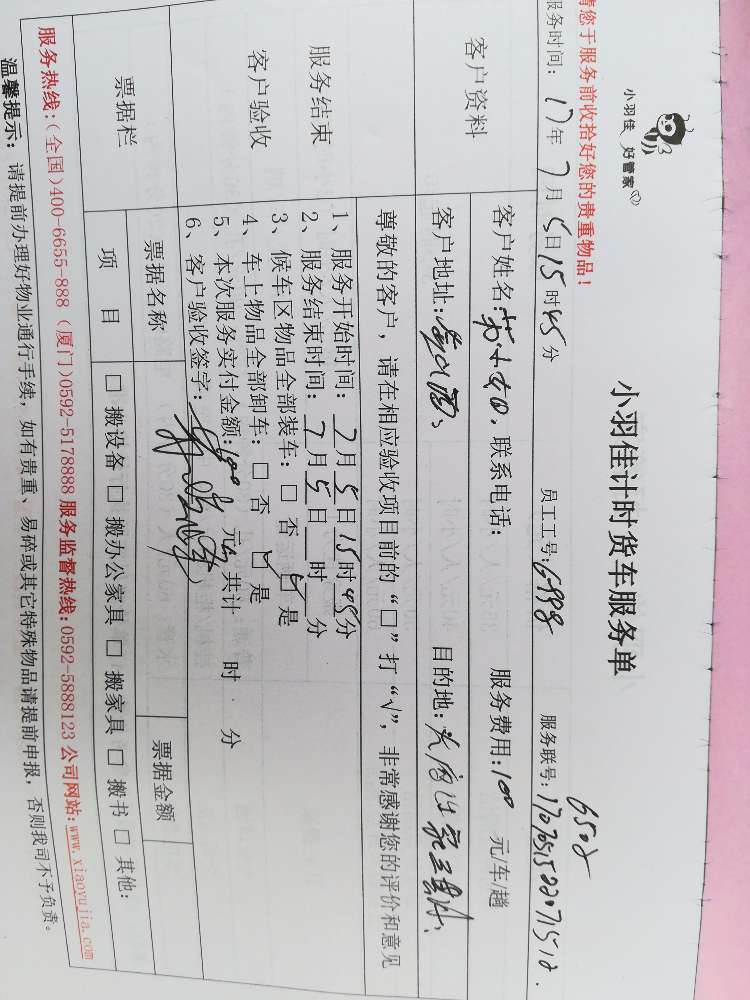 小羽佳 好管家
小羽佳计时货车服务单
请您于服务前收拾好您的贵重物品!
服务时间: 17年7月5日15时45分 员工工号: 服务联号:
客户资料
客户姓名: 联系电话: 服务费用:100 元/车/趟
客户地址: 目的地:
尊敬的客户,请在相应验收项目前的“□”打“√”,非常感谢您的评价和意见
服务结束
客户验收
1、服务开始时间:7月5日15时45分
2、服务结束时间:7月5日 时 分
3、候车区物品全部装车:□ 否 ☑ 是
4、车上物品全部卸车:□ 否 ☑ 是
5、本次服务实付金额:100 元 共计: 时 分
6、客户验收签字:
票据栏
票据名称 票据金额
项 目 □ 搬设备 □ 搬办公家具 □ 搬家具 □ 搬书 □ 其他:
服务热线:(全国)400-6655-888 (厦门)0592-5178888 服务监督热线:0592-5888123 公司网站:www.xiaoyujia.com
温馨提示:请提前办理好物业通行手续,如有贵重、易碎或其它特殊物品请提前申报,否则我司不予负责。